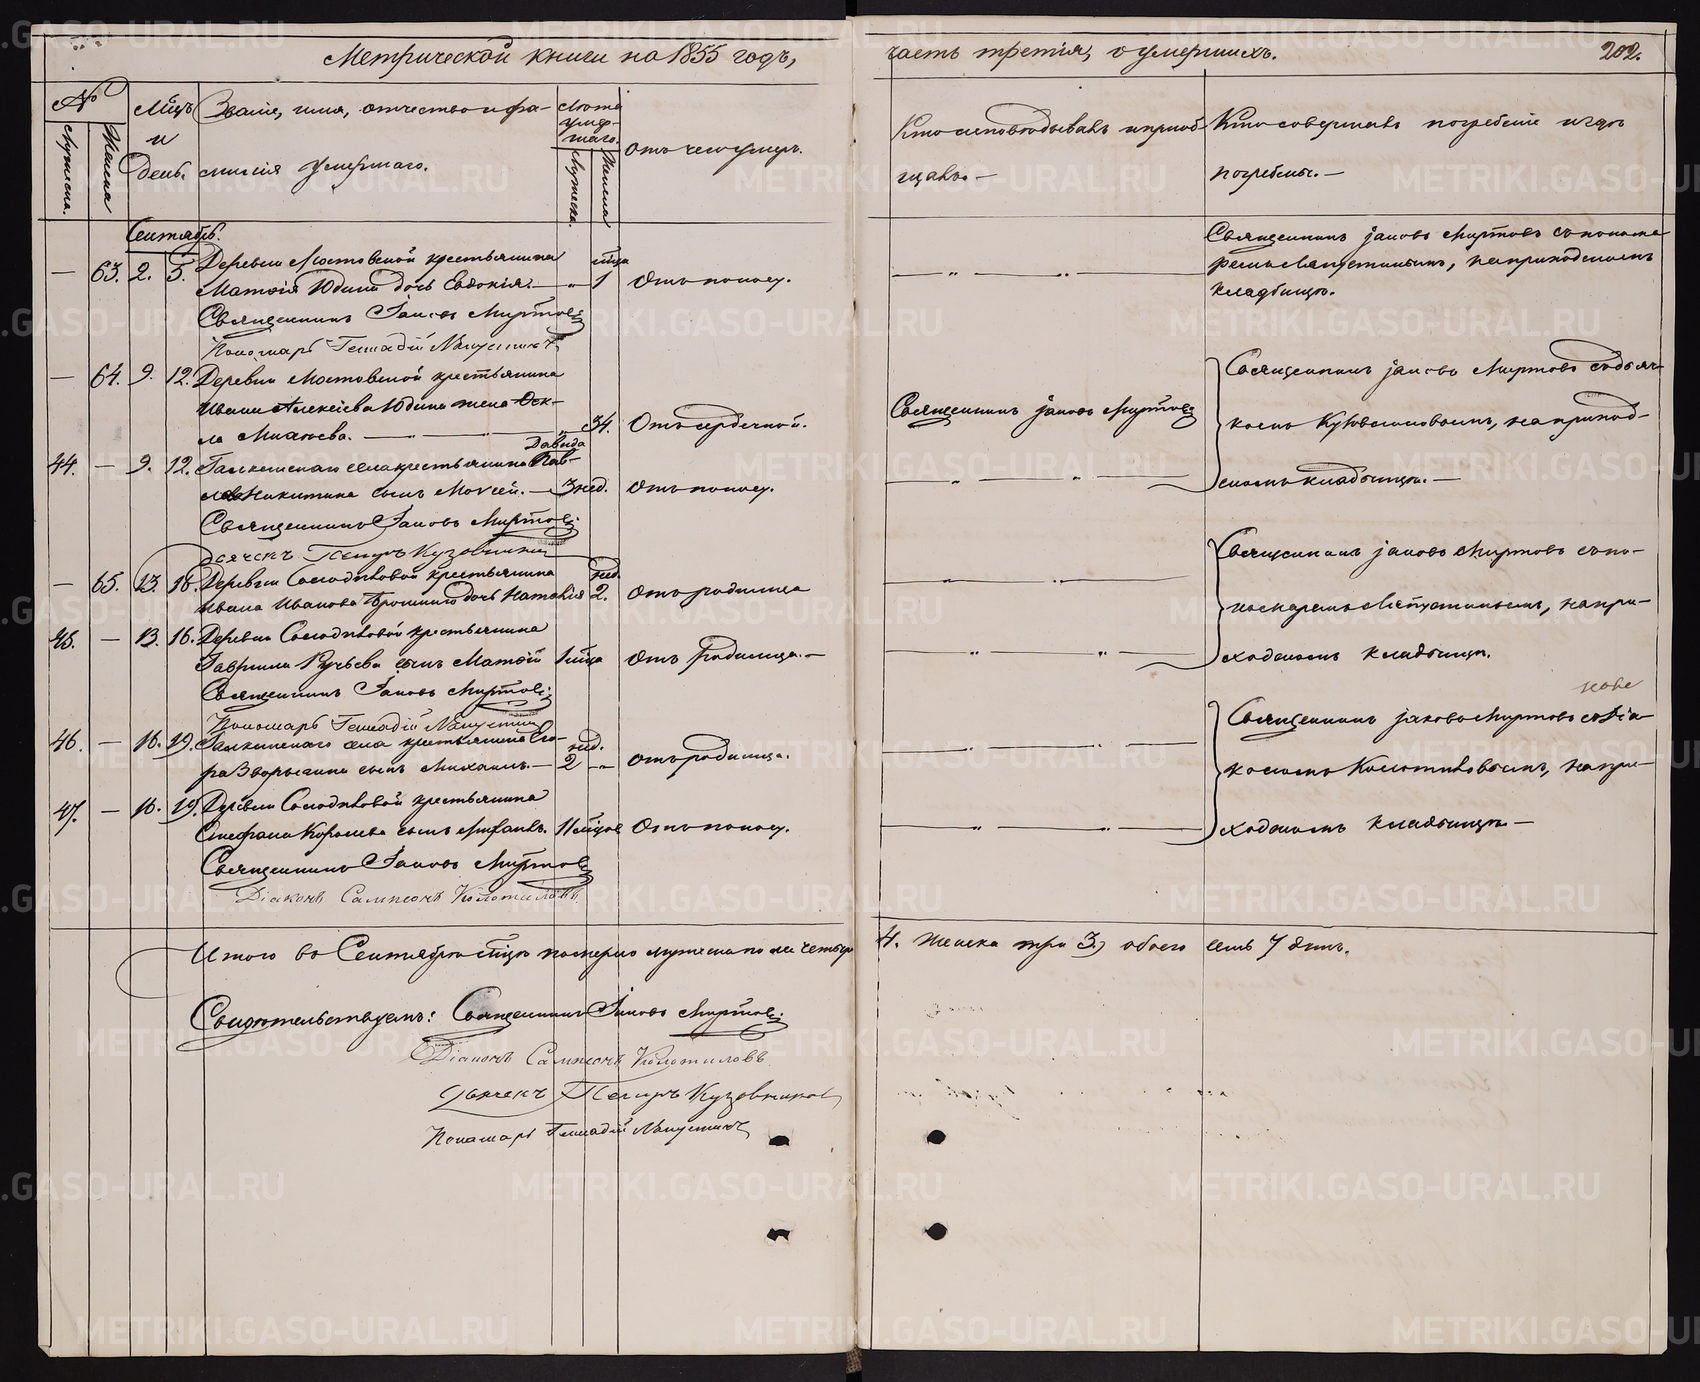 Метрической книги на 1855 годъ,
часть третія, о умершихъ.
202.
№
Мужеска.
Женска
Мѣцъ
и
день.
Званіе, имя, отчество и фа-
милія умершаго.
Лѣта
умер-
шаго.
Мужеска.
Женска
Отъ чего умеръ.
Кто исповѣдывалъ и приоб-
щалъ. —
Кто совершалъ погребеніе и гдѣ
погребены. —
Сентябрь.
— 63. 2. 5. Деревни Мостовской крестьянина
Матѳія Юдина дочь Евдокія. — " 1 мѣца Отъ поносу.
Священникъ Іаковъ Миртовъ
Пономарь Геннадій
— 64. 9. 12. Деревни Мостовской крестьянина
Ивана Алексіева Юдина жена Ѳек-
ла Михеева. — " 34. Отъ сердечной.
44. — 9. 12. Галкинскаго села крестьянина Давыда
Никитина сынъ Моисей. — 3 нед. Отъ поносу.
Священникъ Іаковъ Миртовъ
Дьячекъ Петръ Кузовниковъ
— 65. 13. 18. Деревни Солодиловой крестьянина
Ивана Иванова дочь Наталія нед. 2. Отъ родимца
45. — 13. 16. Деревни Солодиловой крестьянина
Гавріила сынъ Матѳій 1 мѣца Отъ родимца. —
Священникъ Іаковъ Миртовъ
Пономарь Геннадій
46. — 16. 19. Галкинскаго села крестьянина Его-
ра сынъ Михаилъ. — нед. 2 — " Отъ родимца.
47. — 16. 19. Деревни Солодиловой крестьянина
Стефана Королева сынъ 11 мѣцов Отъ поносу.
Священникъ Іаковъ Миртовъ
Діаконъ Сампсонъ Колотиловъ
Священникъ Іаковъ Миртовъ съ понома-
ремъ, на приходскомъ
кладбищѣ.
Священникъ Іаковъ Миртовъ
Священникъ Іаковъ Миртовъ съ дьяч-
комъ Кузовниковымъ, на приход-
скомъ кладбищѣ. —
Священникъ Іаковъ Миртовъ съ по-
номаремъ, на при-
ходскомъ кладбищѣ.
Священникъ Іаковъ Миртовъ съ Діа-
кономъ Колотиловымъ, на при-
ходскомъ кладбищѣ —
Итого въ Сентябрѣ мѣцѣ померло мужеска пола четыре
4. женска три 3, обоего семь 7 душъ.
Свидѣтельствуемъ: Священникъ Іаковъ Миртовъ
Діаконъ Сампсонъ Колотиловъ
Дьячекъ Петръ Кузовниковъ
Пономарь Геннадій
METRIKI.GASO-URAL.RU